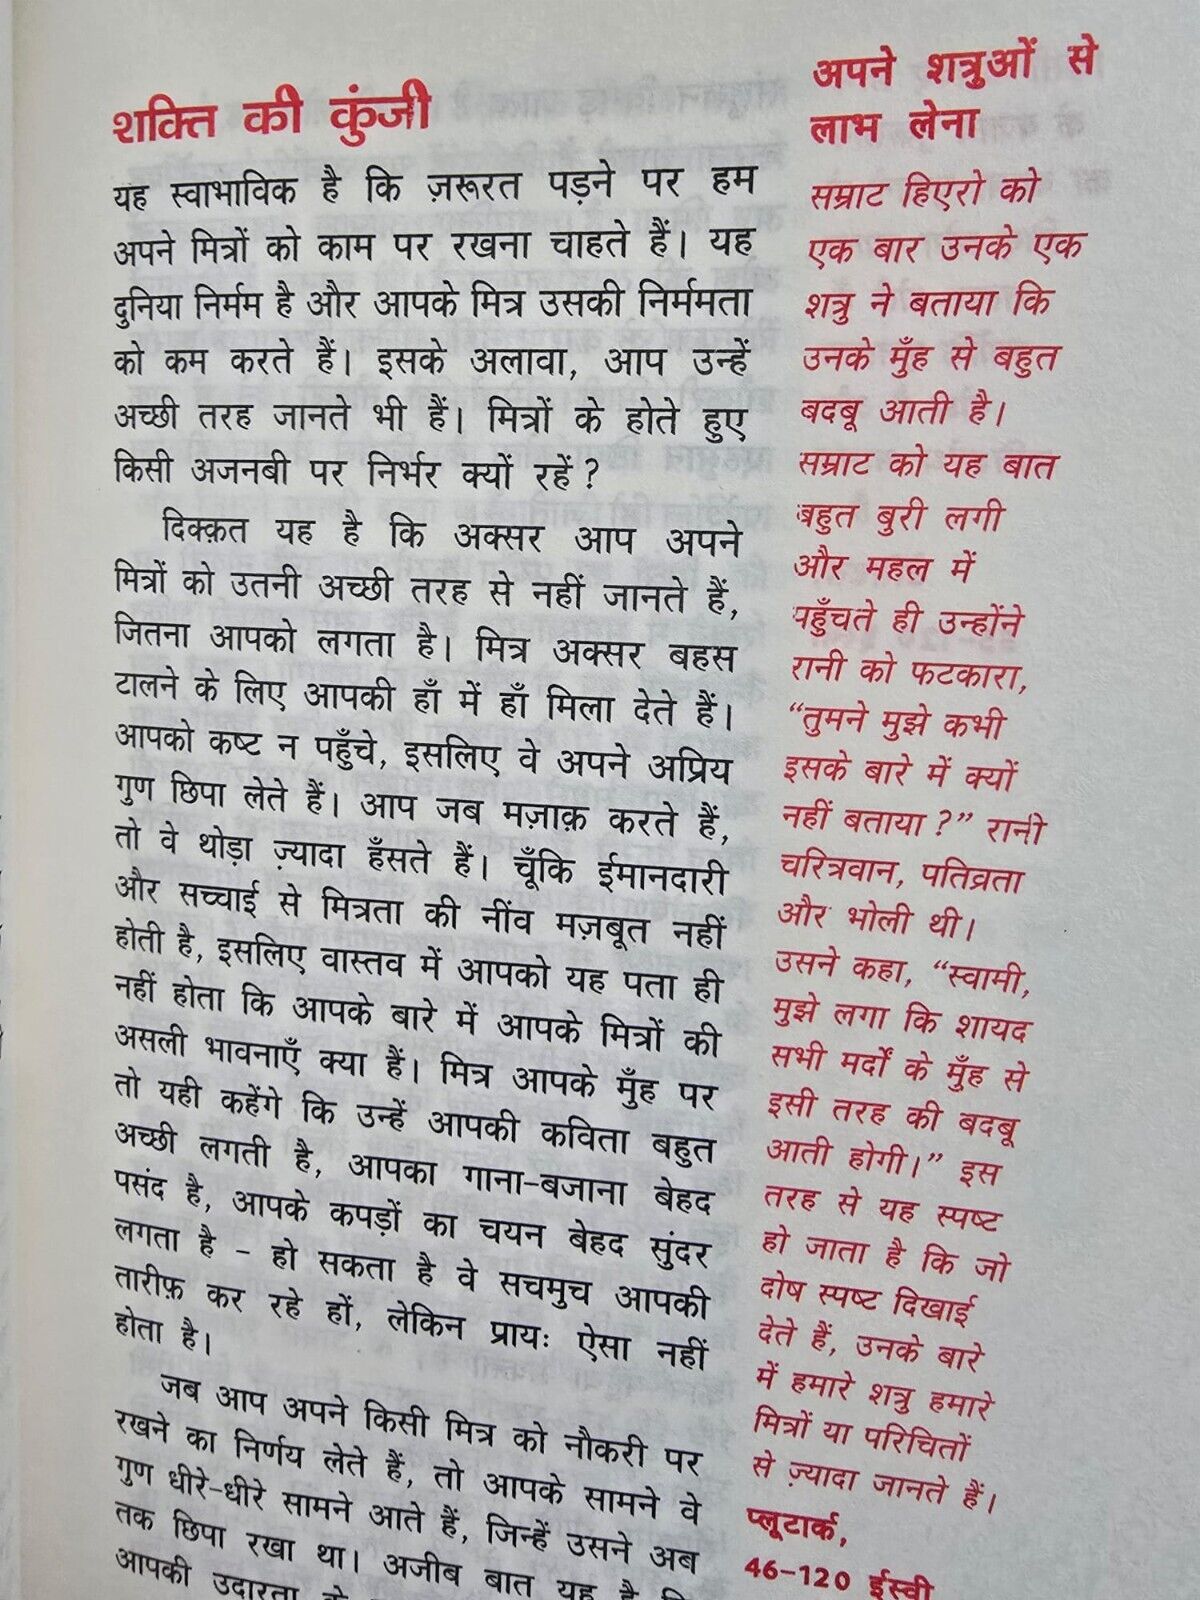 शक्ति की कुंजी
यह स्वाभाविक है कि ज़रूरत पड़ने पर हम
अपने मित्रों को काम पर रखना चाहते हैं। यह
दुनिया निर्मम है और आपके मित्र उसकी निर्ममता
को कम करते हैं। इसके अलावा, आप उन्हें
अच्छी तरह जानते भी हैं। मित्रों के होते हुए
किसी अजनबी पर निर्भर क्यों रहें?
दिक्क़त यह है कि अक्सर आप अपने
मित्रों को उतनी अच्छी तरह से नहीं जानते हैं,
जितना आपको लगता है। मित्र अक्सर बहस
टालने के लिए आपकी हाँ में हाँ मिला देते हैं।
आपको कष्ट न पहुँचे, इसलिए वे अपने अप्रिय
गुण छिपा लेते हैं। आप जब मज़ाक़ करते हैं,
तो वे थोड़ा ज़्यादा हँसते हैं। चूँकि ईमानदारी
और सच्चाई से मित्रता की नींव मज़बूत नहीं
होती है, इसलिए वास्तव में आपको यह पता ही
नहीं होता कि आपके बारे में आपके मित्रों की
असली भावनाएँ क्या हैं। मित्र आपके मुँह पर
तो यही कहेंगे कि उन्हें आपकी कविता बहुत
अच्छी लगती है, आपका गाना-बजाना बेहद
पसंद है, आपके कपड़ों का चयन बेहद सुंदर
लगता है - हो सकता है वे सचमुच आपकी
तारीफ़ कर रहे हों, लेकिन प्रायः ऐसा नहीं
होता है।
जब आप अपने किसी मित्र को नौकरी पर
रखने का निर्णय लेते हैं, तो आपके सामने वे
गुण धीरे-धीरे सामने आते हैं, जिन्हें उसने अब
तक छिपा रखा था। अजीब बात यह है
आपकी उदारता
अपने शत्रुओं से
लाभ लेना
सम्राट हिएरो को
एक बार उनके एक
शत्रु ने बताया कि
उनके मुँह से बहुत
बदबू आती है।
सम्राट को यह बात
बहुत बुरी लगी
और महल में
पहुँचते ही उन्होंने
रानी को फटकारा,
“तुमने मुझे कभी
इसके बारे में क्यों
नहीं बताया?” रानी
चरित्रवान, पतिव्रता
और भोली थी।
उसने कहा, “स्वामी,
मुझे लगा कि शायद
सभी मर्दों के मुँह से
इसी तरह की बदबू
आती होगी।” इस
तरह से यह स्पष्ट
हो जाता है कि जो
दोष स्पष्ट दिखाई
देते हैं, उनके बारे
में हमारे शत्रु हमारे
मित्रों या परिचितों
से ज़्यादा जानते हैं।
प्लूटार्क,
46-120 ईस्वी